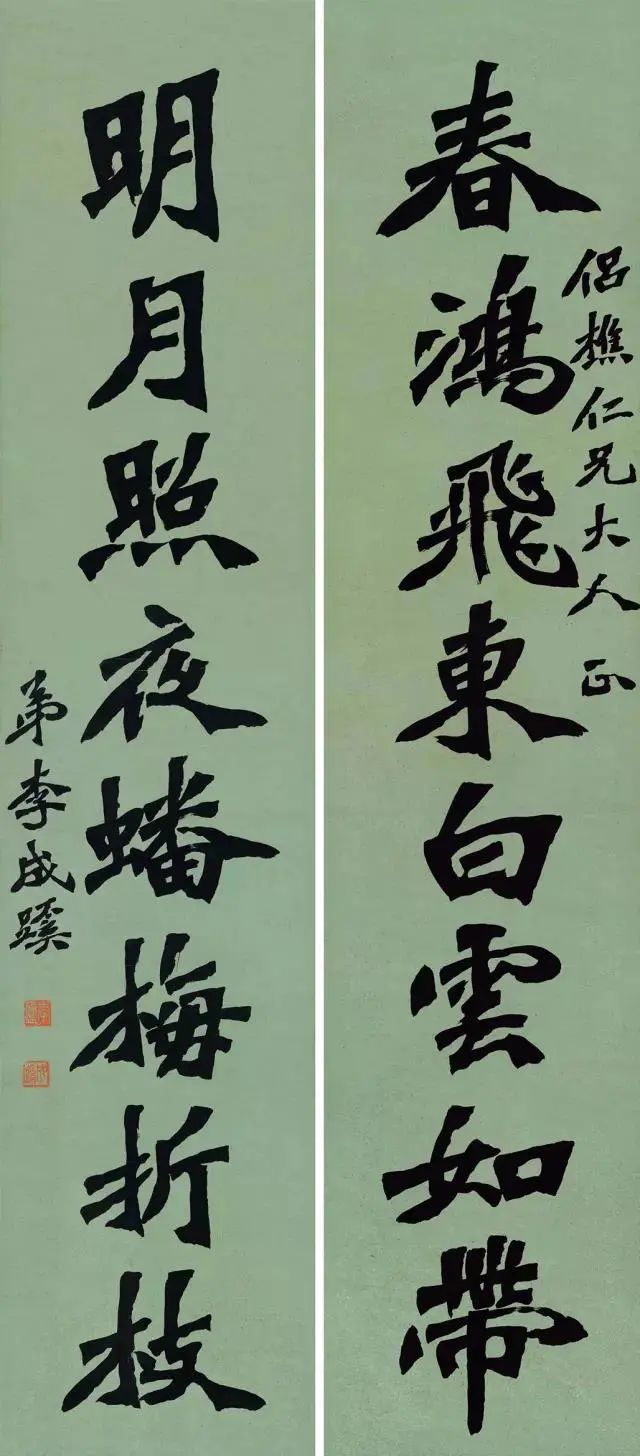 春鴻飛東白雲如帶
侶樵仁兄大人正
明月照夜蟠梅折枝
弟李成蹊